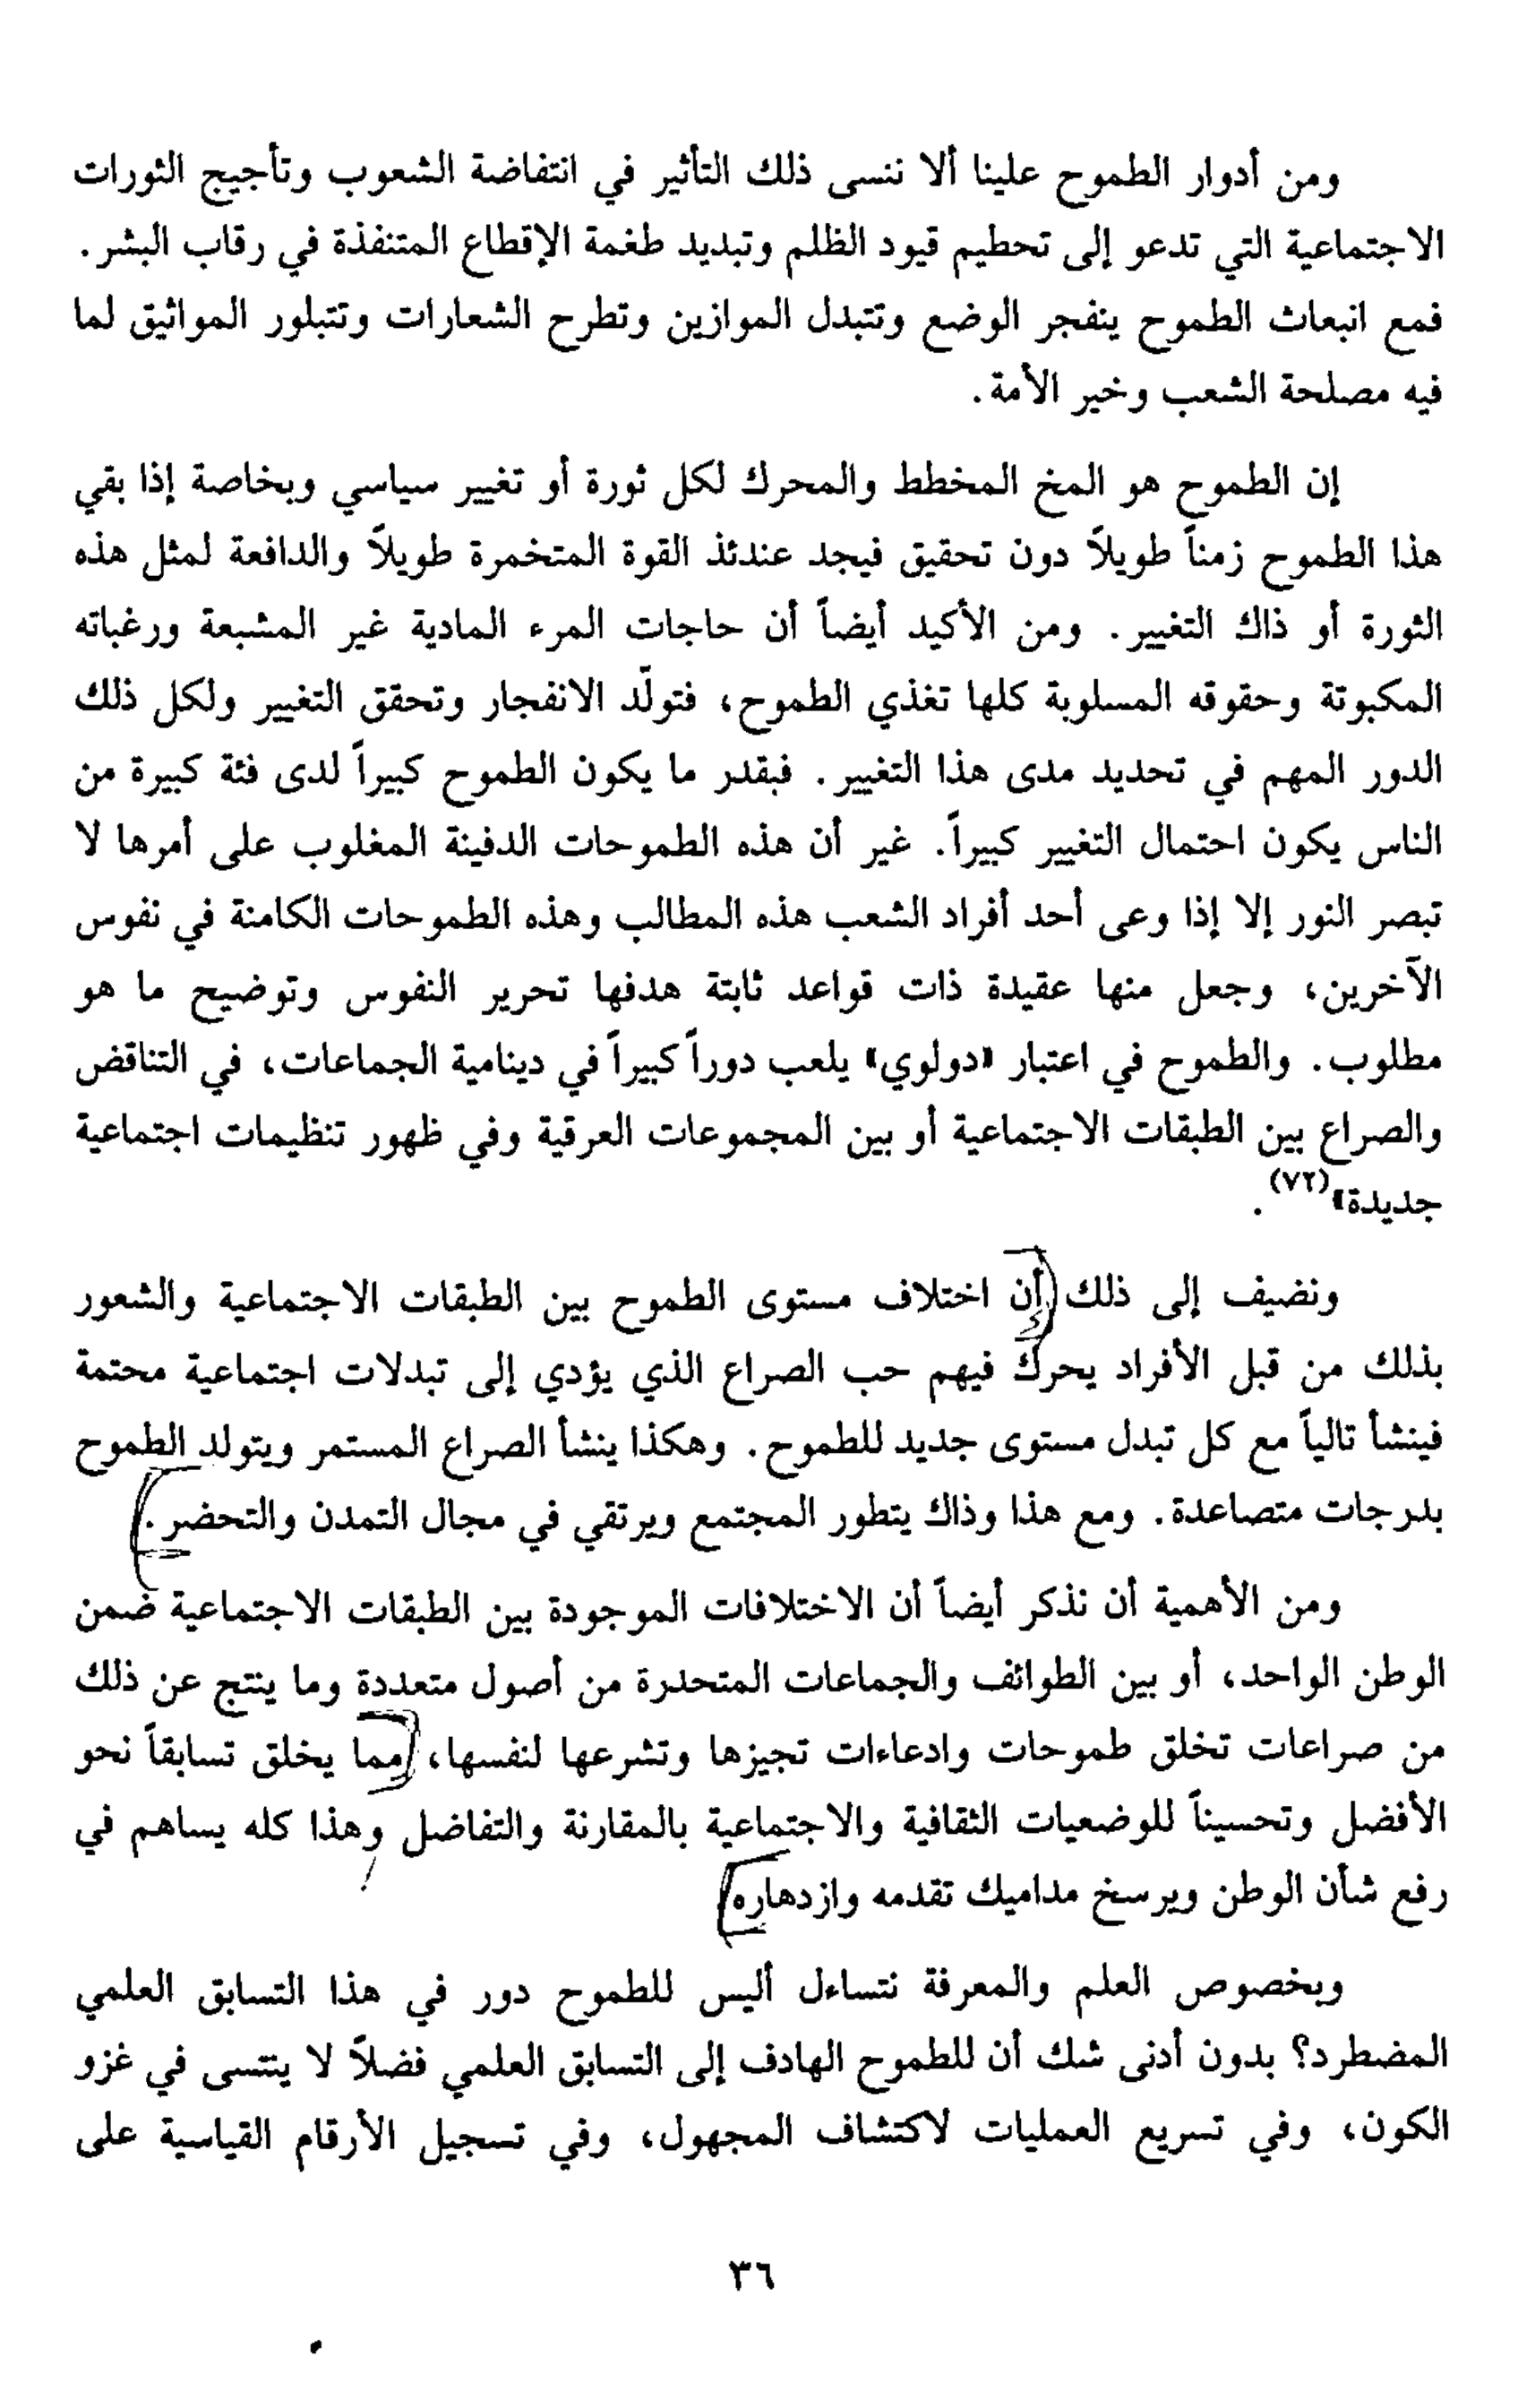 ومن أدوار الطموح علينا ألا ننسى ذلك التأثير في انتفاضة الشعوب وتأجيج الثورات
الاجتماعية التي تدعو إلى تحطيم قيود الظلم وتبديد طغمة الإقطاع المتنفذة في رقاب البشر.
فمع انبعاث الطموح ينفجر الوضع وتتبدل الموازين وتطرح الشعارات وتتبلور المواثيق لما
فيه مصلحة الشعب وخير الأمة.
إن الطموح هو المخ المخطط والمحرك لكل ثورة أو تغيير سياسي وبخاصة إذا بقي
هذا الطموح زمناً طويلاً دون تحقيق فيجد عندئذ القوة المتخمرة طويلاً والدافعة لمثل هذه
الثورة أو ذاك التغيير. ومن الأكيد أيضاً أن حاجات المرء المادية غير المشبعة ورغباته
المكبوتة وحقوقه المسلوبة كلها تغذي الطموح، فتولّد الانفجار وتحقق التغيير ولكل ذلك
الدور المهم في تحديد مدى هذا التغيير. فبقدر ما يكون الطموح كبيراً لدى فئة كبيرة من
الناس يكون احتمال التغيير كبيراً. غير أن هذه الطموحات الدفينة المغلوب على أمرها لا
تبصر النور إلا إذا وعى أحد أفراد الشعب هذه المطالب وهذه الطموحات الكامنة في نفوس
الآخرين، وجعل منها عقيدة ذات قواعد ثابتة هدفها تحرير النفوس وتوضيح ما هو
مطلوب. والطموح في اعتبار «دولوي» يلعب دوراً كبيراً في دينامية الجماعات، في التناقض
والصراع بين الطبقات الاجتماعية أو بين المجموعات العرقية وفي ظهور تنظيمات اجتماعية
جديدة»(٧٢).
ونضيف إلى ذلك أن اختلاف مستوى الطموح بين الطبقات الاجتماعية والشعور
بذلك من قبل الأفراد يحرك فيهم حب الصراع الذي يؤدي إلى تبدلات اجتماعية محتمة
فينشأ تالياً مع كل تبدل مستوى جديد للطموح. وهكذا ينشأ الصراع المستمر ويتولد الطموح
بدرجات متصاعدة. ومع هذا وذاك يتطور المجتمع ويرتقي في مجال التمدن والتحضر.
ومن الأهمية أن نذكر أيضاً أن الاختلافات الموجودة بين الطبقات الاجتماعية ضمن
الوطن الواحد، أو بين الطوائف والجماعات المتحدرة من أصول متعددة وما ينتج عن ذلك
من صراعات تخلق طموحات وادعاءات تجيزها وتشرعها لنفسها، مما يخلق تسابقاً نحو
الأفضل وتحسيناً للوضعيات الثقافية والاجتماعية بالمقارنة والتفاضل وهذا كله يساهم في
رفع شأن الوطن ويرسخ مداميك تقدمه وازدهاره
وبخصوص العلم والمعرفة نتساءل أليس للطموح دور في هذا التسابق العلمي
المضطرد؟ بدون أدنى شك أن للطموح الهادف إلى التسابق العلمي فضلاً لا ينتسى في غزو
الكون، وفي تسريع العمليات لاكتشاف المجهول، وفي تسجيل الأرقام القياسية على
٣٦